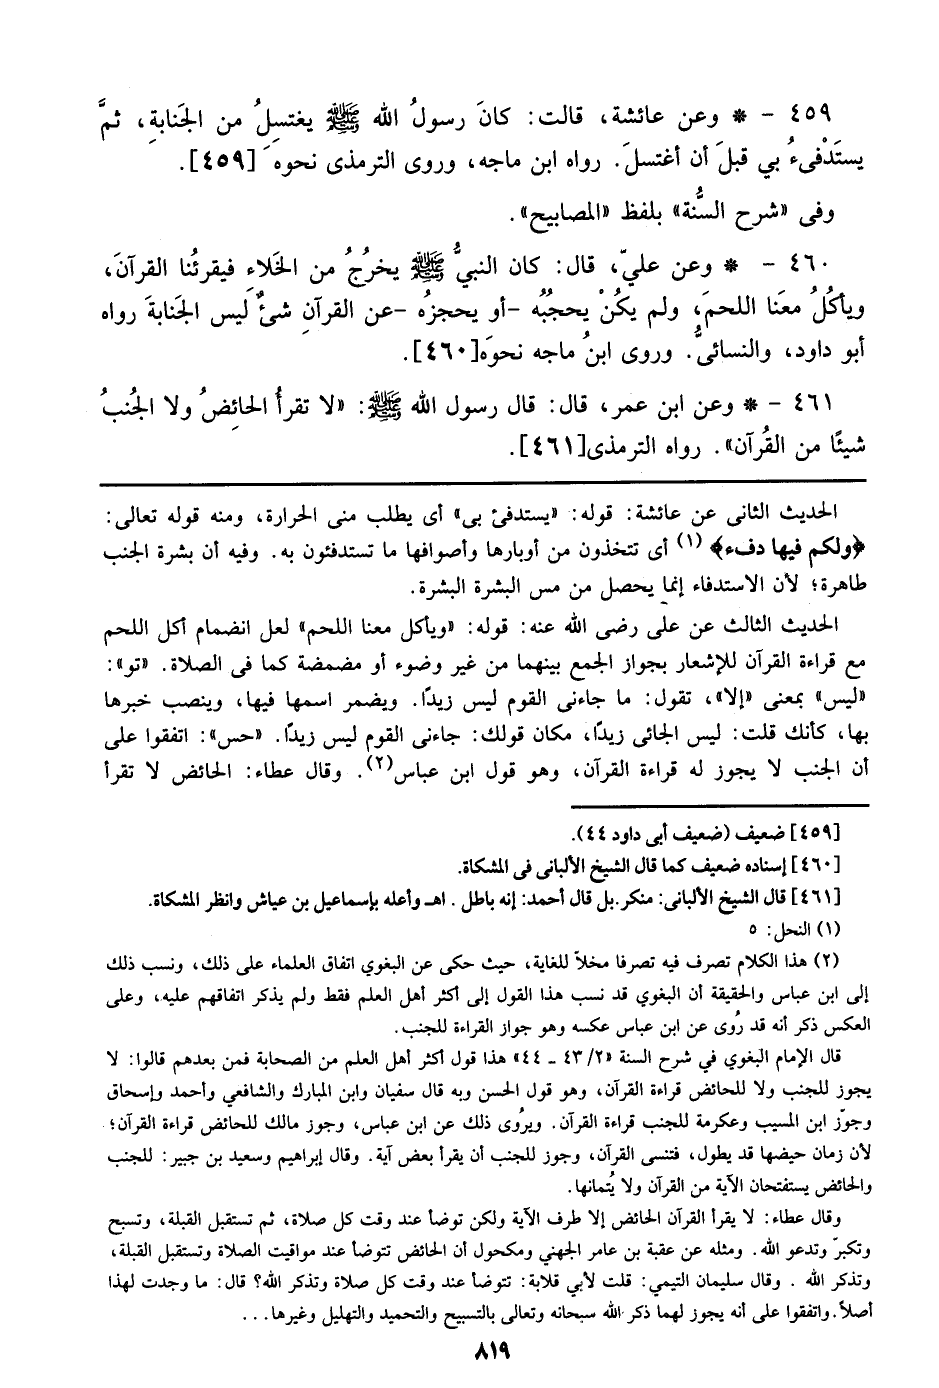 ٤٥٩ – * وعن عائشة، قالت: كانَ رسولُ الله ﷺ يغتسِلُ من الجَنابةِ، ثمَّ
يستَدْفىءُ بي قبلَ أن أغتسلَ. رواه ابن ماجه، وروى الترمذى نحوه [٤٥٩].
وفى «شرح السُّنة» بلفظ «المصابيح».
٤٦٠ – * وعن عليّ، قال: كان النبيُّ ﷺ يخرُجُ من الخَلاءِ فيقرئُنا القرآنَ،
ويأكُلُ معَنا اللحمَ، ولم يكُنْ يحجبُهُ –أو يحجزهُ –عن القرآنِ شئٌ ليس الجَنابةَ رواه
أبو داود، والنسائىُّ. وروى ابنُ ماجه نحوَه[٤٦٠].
٤٦١ – * وعن ابن عمر، قال: قال رسول الله ﷺ: «لا تقرأُ الحائِضُ ولا الجُنبُ
شيئًا من القُرآن». رواه الترمذى[٤٦١].
الحديث الثانى عن عائشة: قوله: «يستدفئ بى» أى يطلب منى الحرارة، ومنه قوله تعالى:
﴿ولكم فيها دفء﴾ (١) أى تتخذون من أوبارها وأصوافها ما تستدفئون به. وفيه أن بشرة الجنب
طاهرة؛ لأن الاستدفاء إنما يحصل من مس البشرة البشرة.
الحديث الثالث عن على رضى الله عنه: قوله: «ويأكل معنا اللحم» لعل انضمام أكل اللحم
مع قراءة القرآن للإشعار بجواز الجمع بينهما من غير وضوء أو مضمضة كما فى الصلاة. «تو»:
«ليس» بمعنى «إلا»، تقول: ما جاءنى القوم ليس زيدًا. ويضمر اسمها فيها، وينصب خبرها
بها، كأنك قلت: ليس الجائى زيدًا، مكان قولك: جاءنى القوم ليس زيدًا. «حس»: اتفقوا على
أن الجنب لا يجوز له قراءة القرآن، وهو قول ابن عباس(٢). وقال عطاء: الحائض لا تقرأ
[٤٥٩] ضعيف (ضعيف أبى داود ٤٤).
[٤٦٠] إسناده ضعيف كما قال الشيخ الألبانى فى المشكاة.
[٤٦١] قال الشيخ الألبانى: منكر.بل قال أحمد: إنه باطل . اهـ وأعله بإسماعيل بن عياش وانظر المشكاة.
(١) النحل: ٥
(٢) هذا الكلام تصرف فيه تصرفا مخلاً للغاية، حيث حكى عن البغوي اتفاق العلماء على ذلك، ونسب ذلك
إلى ابن عباس والحقيقة أن البغوي قد نسب هذا القول إلى أكثر أهل العلم فقط ولم يذكر اتفاقهم عليه، وعلى
العكس ذكر أنه قد رُوى عن ابن عباس عكسه وهو جواز القراءة للجنب.
قال الإمام البغوي في شرح السنة «٢/ ٤٣ ـ ٤٤» هذا قول أكثر أهل العلم من الصحابة فمن بعدهم قالوا: لا
يجوز للجنب ولا للحائض قراءة القرآن، وهو قول الحسن وبه قال سفيان وابن المبارك والشافعي وأحمد وإسحاق
وجوّز ابن المسيب وعكرمة للجنب قراءة القرآن. ويرُوى ذلك عن ابن عباس، وجوز مالك للحائض قراءة القرآن؛
لأن زمان حيضها قد يطول، فتنسى القرآن، وجوز للجنب أن يقرأ بعض آية. وقال إبراهيم وسعيد بن جبير: للجنب
والحائض يستفتحان الآية من القرآن ولا يُتمانها.
وقال عطاء: لا يقرأ القرآن الحائض إلا طرف الآية ولكن توضأ عند وقت كل صلاة، ثم تستقبل القبلة، وتسبح
وتكبرّ وتدعو الله. ومثله عن عقبة بن عامر الجهني ومكحول أن الحائض تتوضأ عند مواقيت الصلاة وتستقبل القبلة،
وتذكر الله . وقال سليمان التيمي: قلت لأبي قلابة: تتوضأ عند وقت كل صلاة وتذكر الله؟ قال: ما وجدت لهذا
أصلاً.واتفقوا على أنه يجوز لهما ذكر الله سبحانه وتعالى بالتسبيح والتحميد والتهليل وغيرها...
٨١٩